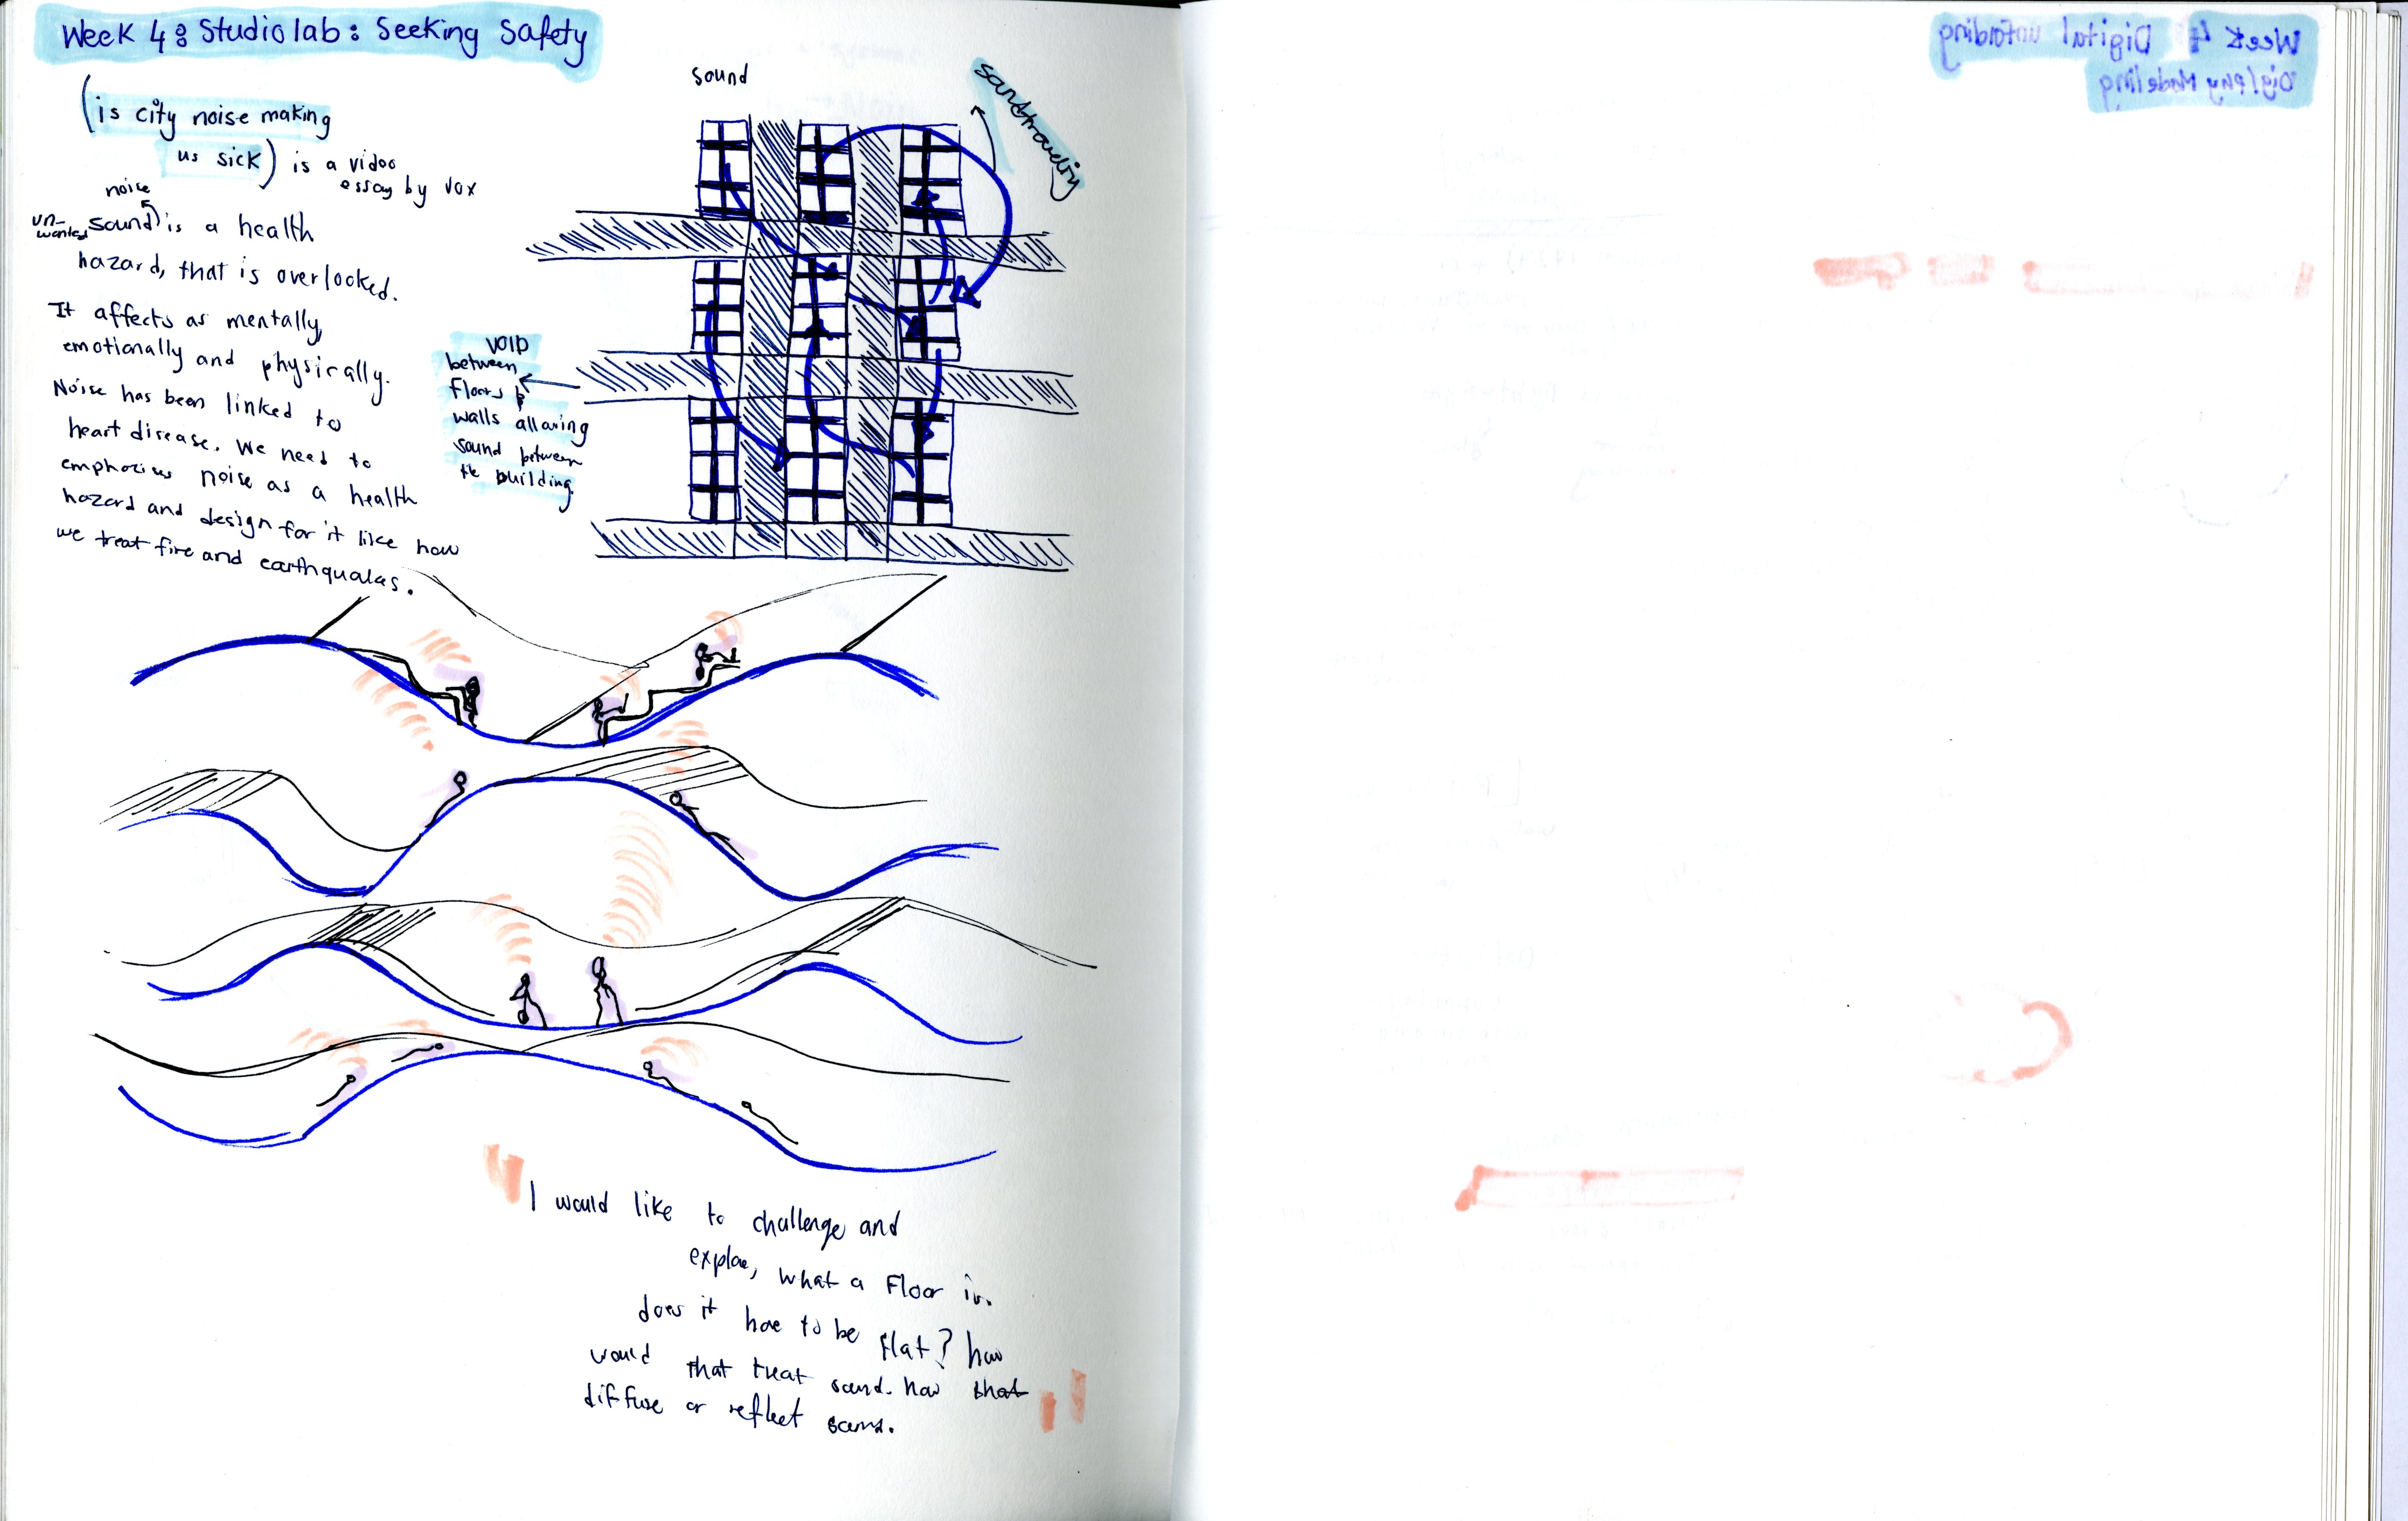 Week 4: Studio lab: Seeking Safety
(is city noise making
us sick) is a vidoo
essay by vox
noise
un-wanted sound) is a health
hazard, that is overlooked.
It affects as mentally,
emotionally and physically.
Noise has been linked to
heart disease. We need to
noise as a health
hazard and design for it like how
we treat fire and earthqualas.
sound
VOID
between
floors &
walls allowing
sound between
the building.
I would like to challenge and
explore, what a Floor is.
does it have to be flat? how
would that treat sound. how that
diffuse or reflect sound.
Week 4 Digital unfolding
Dig/Phy Modeling